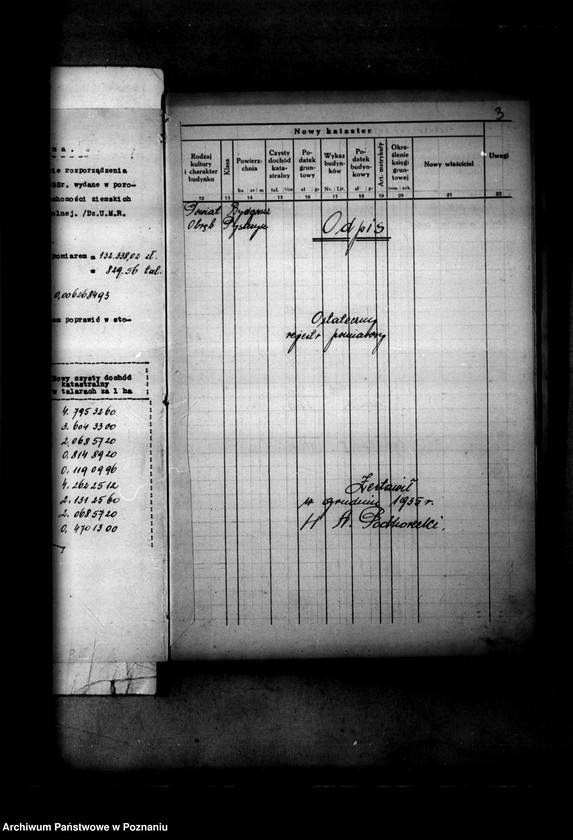 na.
ie rozporządzenia
35r. wydane w poro-
chomości ziemskich
olnej. /Dz.U.M.R.
pomiarem = 132.338,02 zł.
= 829.56 tal.
0,006268493
em poprawić w sto-
Nowy czysty dochód
katastralny
w talarach za 1 ha
4. 7953260
3. 6043300
2. 0685720
0. 8148920
0. 1190996
4. 2622512
2. 1312560
2. 0685720
0. 4701300
3
Nowy kataster
Rodzaj kultury i charakter budynku
Klasa
Powierz-chnia
ha ar m
Czysty dochód kata-stralny
tal. /100
Po-datek grun-towy
zł gr
Wykaz budyn-ków
Nr. Lit.
Po-datek budyn-kowy
zł gr
Art. matrykuły
Okre-ślenie księgi grun-towej
tom kch.
Nowy właściciel
Uwagi
12 13 14 15 16 17 18 19 20 21 22
Powiat Bydgoszcz
Obręb
Odpis
Ostateczny
rejestr pomiarowy
Zestawił
w grudniu 1935 r.
A. Podhorecki.
Archiwum Państwowe w Poznaniu